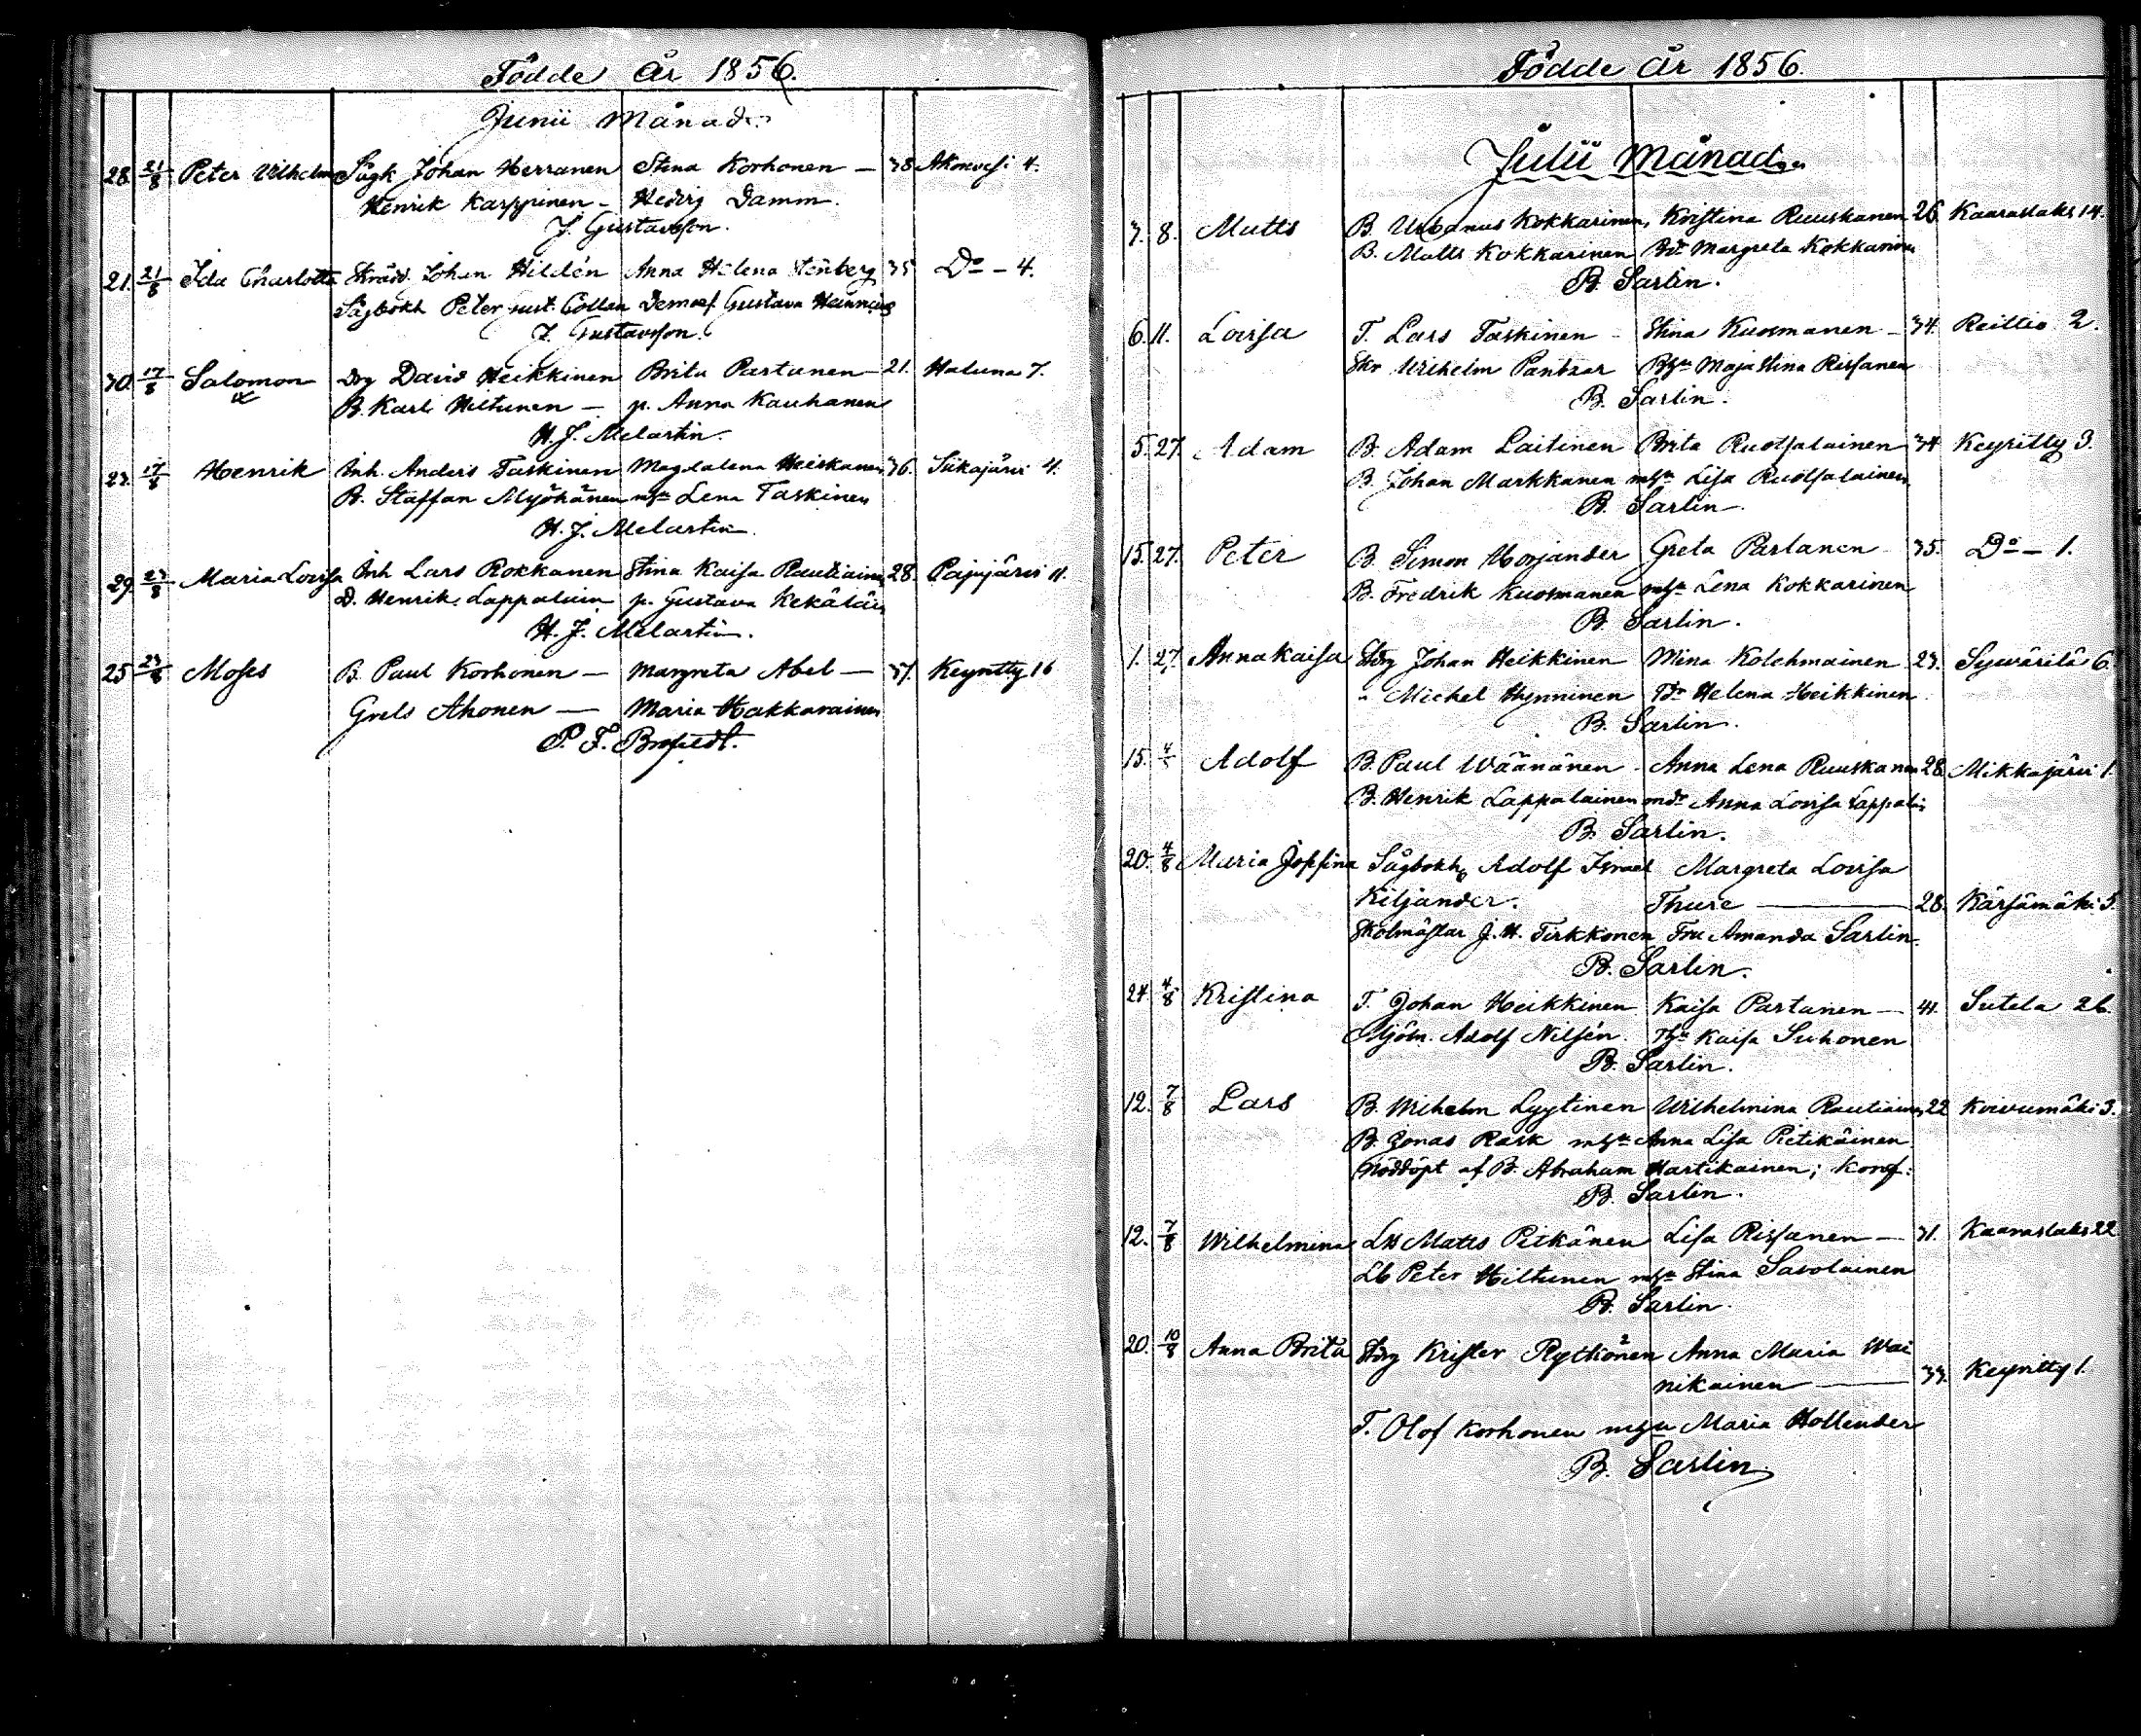 Födde År 1856.
Junii Månad.
28. 21/8 Peter Vilhelm Sågk Johan Herranen Stina Korhonen — 38 Akonvesi 4.
Henrik Karppinen - Hedvig Damm.
J. Gustavsson.
21. 21/8 Ida Charlotta Skräd. Johan Hildén Anna Helena Stenberg 35 Do - 4.
Sågbokh Peter Gust. Collan Demois. Gustava
J. Gustavsson.
30. 17/8 Salomon Drg David Heikkinen Brita Partanen — 21. Haluna 7.
B. Karl Hiltunen — p. Anna Kauhanen
H. J. Melartin.
23. 17/8 Henrik Inh. Anders Taskinen Magdalena Heiskanen 36. Siikajärvi 4.
B. Staffan Myöhänen Lena Taskinen
H. J. Melartin.
29. 23/8 Maria Lovisa Inh Lars Rokkanen Stina Kaisa Rautiainen 28. Pajujärvi 11.
D. Henrik Lappalain p. Gustava Kekäläin
H. J. Melartin.
25 23/8 Moses B. Paul Korhonen — Margreta Abel — 37. Keyritty 16
Grels Ahonen — Maria Hakkarainen
P. F. Brofeldt.
Födde År 1856.
Julii Månad.
3. 8. Matts B. Urbanus Kokkarinen, Kristina Ruuskanen 26. Kaaraslaks 14.
B. Matts Kokkarinen Bdr Margreta Kokkarinen
B. Sarlin.
6. 11. Lovisa T. Lars Taskinen - Stina Kuosmanen — 34. Reittio 2.
Skr Wilhelm Pantzar Maja Stina Rissanen
B. Sarlin.
5. 27. Adam B. Adam Laitinen Brita Ruotsalainen 34 Keyritty 3.
B. Johan Markkanen Lisa Ruotsalainen
B. Sarlin.
15. 27. Peter B. Simon Horjander Greta Partanen 35. Do - 1.
B. Fredrik Kuosmanen Lena Kokkarinen
B. Sarlin.
1. 27. Anna Kaisa Johan Heikkinen Mina Kolehmainen 23. Sywärilä 6.
" Michel Hynninen Helena Heikkinen
B. Sarlin.
15. Adolf B. Paul Wäänänen - Anna Lena Ruuskanen 28. Mikkajärvi 1.
B. Henrik Lappalainen Anna Lovisa Lappalain
B. Sarlin.
20. 4/8 Maria Josefina Sågbokh. Adolf Israel Margreta Lovisa
Kiljander. Thure — 28. Kärsämäki 5.
Skolmästar J. H. Tirkkonen Fru Amanda Sarlin.
B. Sarlin.
24. 4/8 Kristina T. Johan Heikkinen Kaisa Partanen — 41. Sutela 26.
Mjöln. Adolf Nilsén. Kaisa Suhonen
B. Sarlin.
12. 7/8 Lars B. Wilhelm Lyytinen Wilhelmina Rautiainen 22 Koivumäki 3.
B. Jonas Rask Anna Lisa Pietikäinen
Nöddöpt af B. Abraham Hartikainen; konf:
B. Sarlin.
12. 7/8 Wilhelmina Matts Pitkänen Lisa Rissanen — 31. Kaaraslaks 22
Lb Peter Hiltunen Stina Savolainen
B. Sarlin.
20. 10/8 Anna Brita Krister Rytkönen Anna Maria Wai
nikainen — 33. Keyritty 1.
T. Olof Korhonen Maria Hollender
B. Sarlin